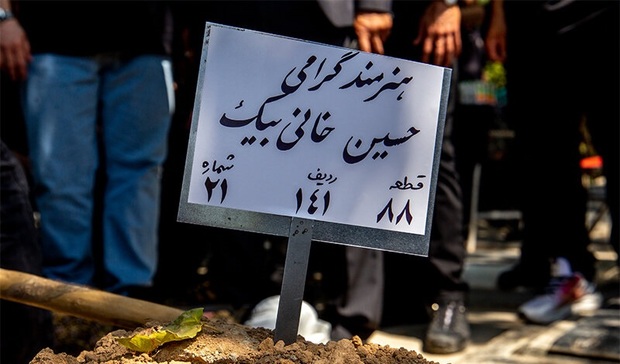 هنرمند گرامی
حسین خانی بیک
قطعه ردیف شماره
۸۸ ۱۴۱ ۲۱